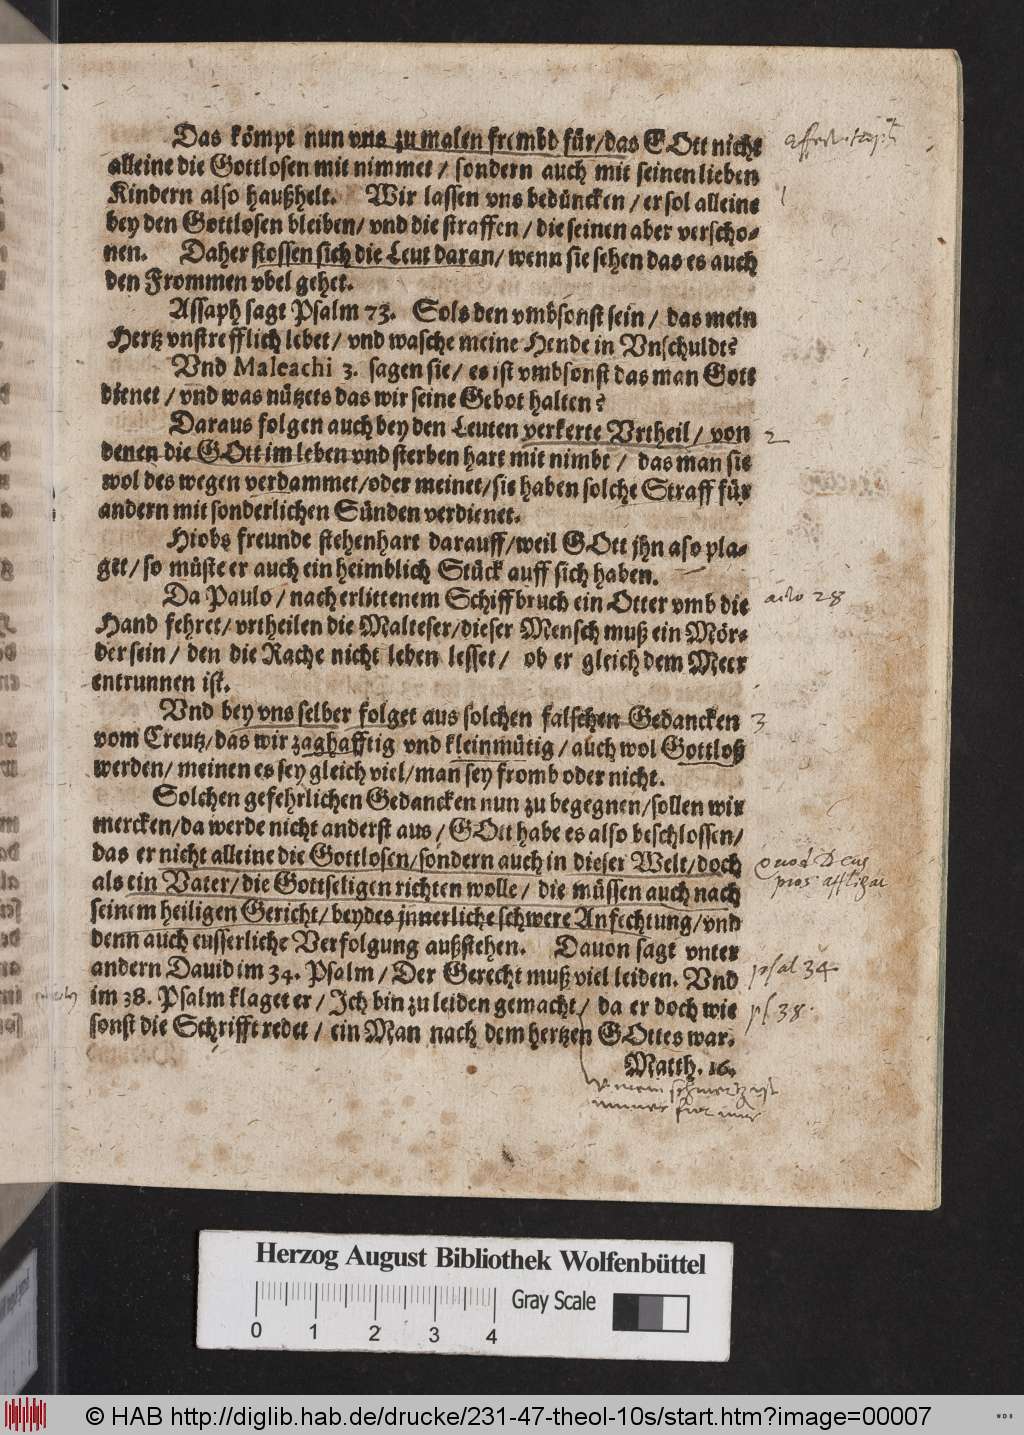 Das kömpt nun vns zu malen frembd für/das GOtt nicht
alleine die Gottlosen mit nimmet / sondern auch mit seinen lieben
Kindern also haußhelt. Wir lassen vns bedüncken / er sol alleine
bey den Gottlosen bleiben/ vnd die straffen / die seinen aber verscho-
nen. Daher stossen sich die Leut daran/ wenn sie sehen das es auch
den Frommen vbel gehet.
Assaph sagt Psalm 73. Sols den vmbsonst sein / das mein
Hertz vnstrefflich lebet/ vnd wasche meine Hende in Vnschuldt?
Vnd Maleachi 3. sagen sie/ es ist vmbsonst das man Gott
dienet / vnd was nützets das wir seine Gebot halten?
Daraus folgen auch bey den Leuten verkerte Vrtheil / von
2
denen die GOtt im leben vnd sterben hart mit nimbt / das man sie
wol des wegen verdammet/oder meinet/sie haben solche Straff für
andern mit sonderlichen Sünden verdienet.
Hiobs freunde stehenhart darauff/weil GOtt jhn aso pla-
get/ so müste er auch ein heimblich Stück auff sich haben.
Da Paulo / nach erlittenem Schiffbruch ein Otter vmb die
28
Hand fehret/ vrtheilen die Malteser/dieser Mensch muß ein Mör-
der sein / den die Rache nicht leben lesset / ob er gleich dem Meer
entrunnen ist.
Vnd bey vns selber folget aus solchen falschen Gedancken
3
vom Creutz/das wir zaghafftig vnd kleinmütig / auch wol Gottloß
werden/ meinen es sey gleich viel/man sey fromb oder nicht.
Solchen gefehrlichen Gedancken nun zu begegnen/sollen wir
mercken/da werde nicht anderst aus / GOtt habe es also beschlossen/
das er nicht alleine die Gottlosen/sondern auch in dieser Welt/doch
quod Deus
als ein Vater/die Gottseligen richten wolle / die müssen auch nach
pios affligat
seinem heiligen Gericht/ beydes jnnerliche schwere Anfechtung/vnd
denn auch eusserliche Verfolgung außstehen. Dauon sagt vnter
andern Dauid im 34. Psalm / Der Gerecht muß viel leiden. Vnd
psal 34
im 38. Psalm klaget er / Ich bin zu leiden gemacht / da er doch wie
ps 38.
sonst die Schrifft redet / ein Man nach dem hertzen GOttes war.
Matth. 16.
mein schmertz ist
immer fur mir
Herzog August Bibliothek Wolfenbüttel
Gray Scale
0 1 2 3 4
© HAB http://diglib.hab.de/drucke/231-47-theol-10s/start.htm?image=00007